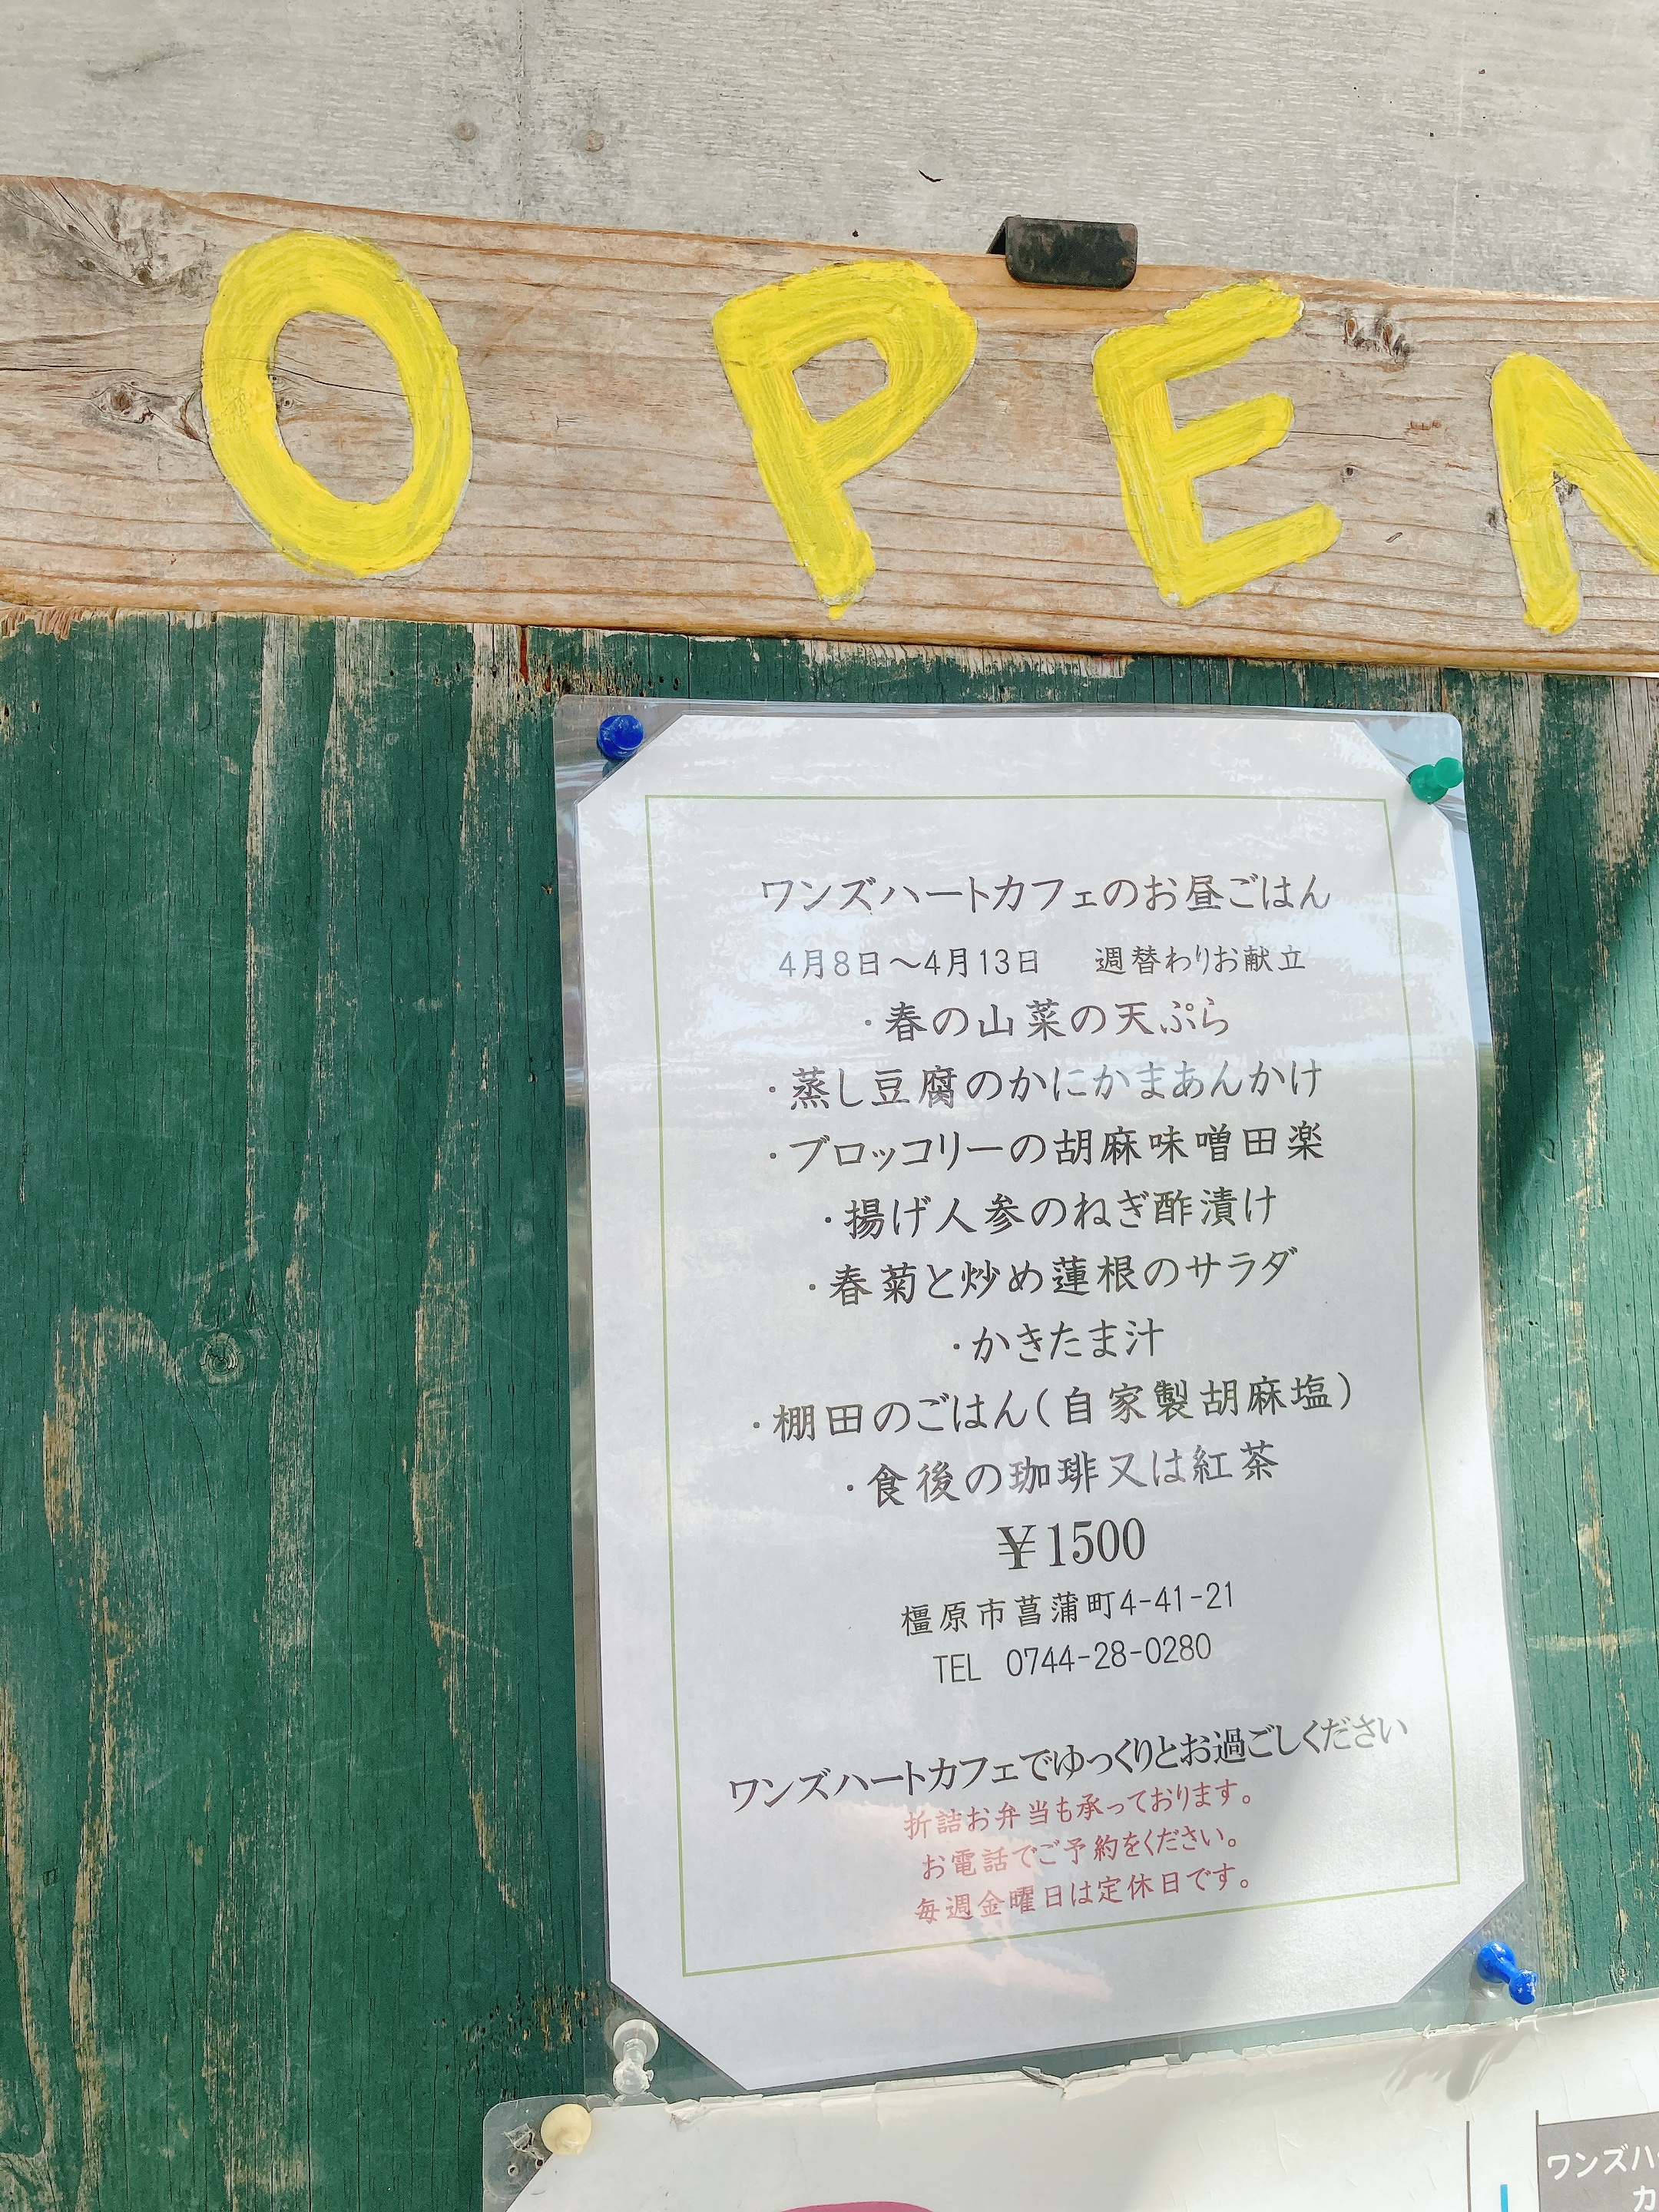 OPEN
ワンズハートカフェのお昼ごはん
4月8日～4月13日 週替わりお献立
・春の山菜の天ぷら
・蒸し豆腐のかにかまあんかけ
・ブロッコリーの胡麻味噌田楽
・揚げ人参のねぎ酢漬け
・春菊と炒め蓮根のサラダ
・かきたま汁
・棚田のごはん(自家製胡麻塩)
・食後の珈琲又は紅茶
¥1500
橿原市菖蒲町4-41-21
TEL 0744-28-0280
ワンズハートカフェでゆっくりとお過ごしください
折詰お弁当も承っております。
お電話でご予約をください。
毎週金曜日は定休日です。
ワンズハ
カ